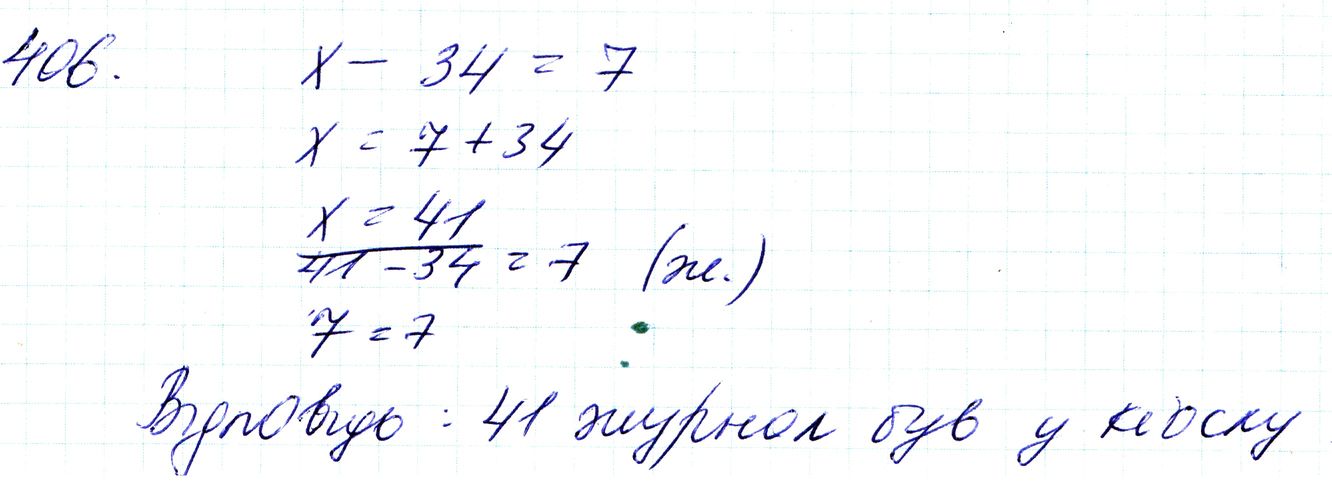 406. x - 34 = 7
x = 7 + 34
x = 41
41 - 34 = 7 (ж.)
7 = 7
Відповідь: 41 журнал був у кіоску